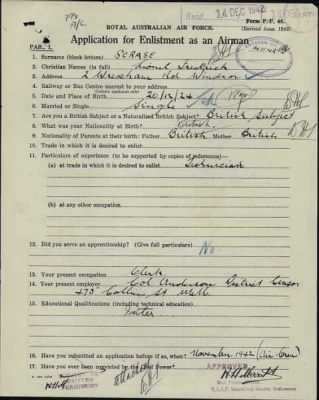 Recd. 14 DEC 1942
Form P/P. 48.
ROYAL AUSTRALIAN AIR FORCE
(Revised June, 1942)
Application for Enlistment as an Airman
PART I.
1 Surname (block letters) SCRASE
2 Christian Names (in full) Lionel Frederick
3 Address 2 Wrexham Rd. Windsor
4 Railway or Bus Centre nearest to your address
5 Date and Place of Birth 20/12/24
6 Married or Single Single
7 Are you a British Subject or a Naturalised British Subject? British Subject
8 What was your Nationality at Birth? British
9 Nationality of Parents at their birth: Father British Mother British
10 Trade in which it is desired to enlist
11 Particulars of experience (to be supported by copies of references)—
(a) at trade in which it is desired to enlist
(b) at any other occupation
12 Did you serve an apprenticeship? (Give full particulars) No.
13 Your present occupation Clerk
14 Your present employer Col Anderson District Censor
473 Collins St Melb
15 Educational Qualifications (including technical education).
Inter.
16 Have you submitted an application before, if so, when? November 1942 (Air Crew)
17 Have you ever been convicted by the Civil Power?
APPROVED